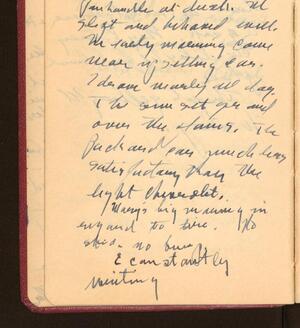 Panhandle at dusk. We
slept and behaved well.
In early morning came
near upsetting car.
I drove mostly all day.
The sunset go and
over the plains. The
Packard car much less
satisfactory than the
light Chevrolet.
Mary's big running in
and to tire. No
skid. no
E constantly
writing